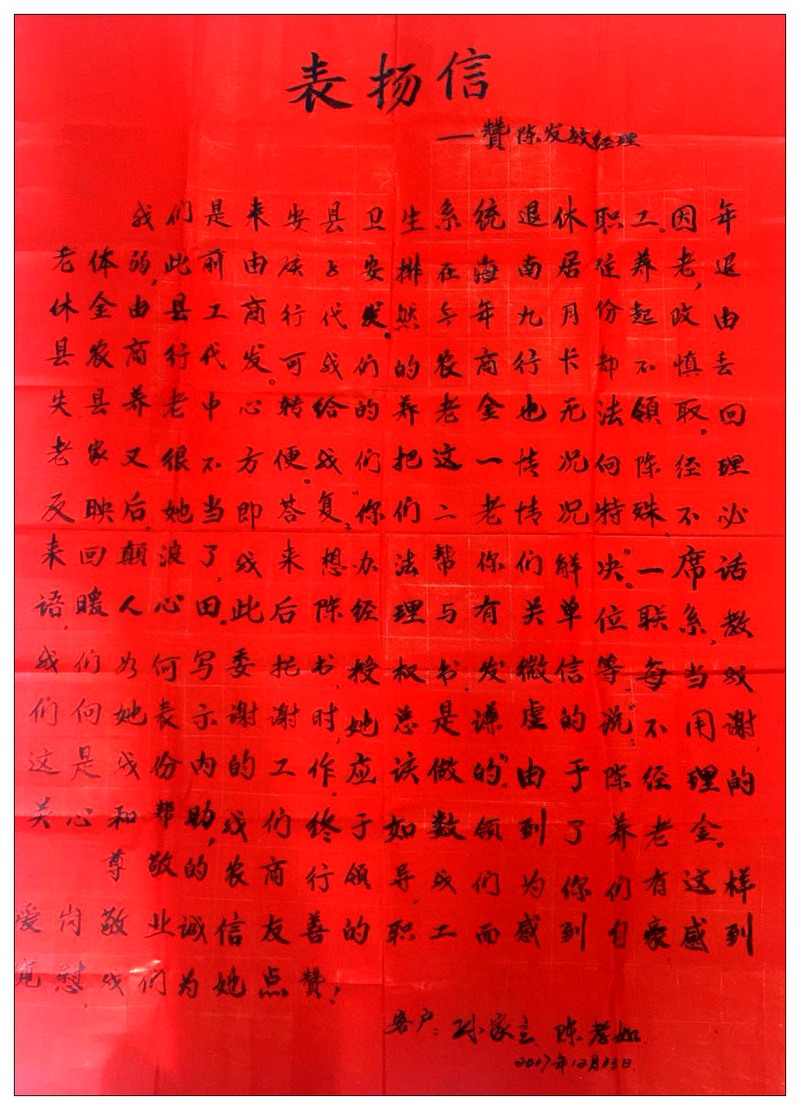 表扬信
一赞陈发敏经理
我们是来安县卫生系统退休职工。因年
老体弱,此前由庆女安排在海南居住养老,退
休金由县工商行代发。然今年九月份起政由
县农商行代发。可我们的农商行卡却不慎丢
失。县养老中心转给的养老金也无法领取。回
老家又很不方便。我们把这一情况向陈经理
反映后,她当即答复,“你们二老情况特殊,不必
来回颠波了,我来想办法帮你们解决”。一席话
语,暖人心田。此后陈经理与有关单位联系,教
我们如何写委托书、授权书、发微信等。每当我
们向她表示谢谢时,她总是谦虚的说“不用谢,
这是我份内的工作,应该做的”。由于陈经理的
关心和帮助,我们终于如数领到了养老金。
尊敬的农商行领导,我们为你们有这样
爱岗敬业诚信友善的职工而感到自豪感到
宽慰,我们为她点赞!
客户:孙家立 陈孝如
2017年12月13日